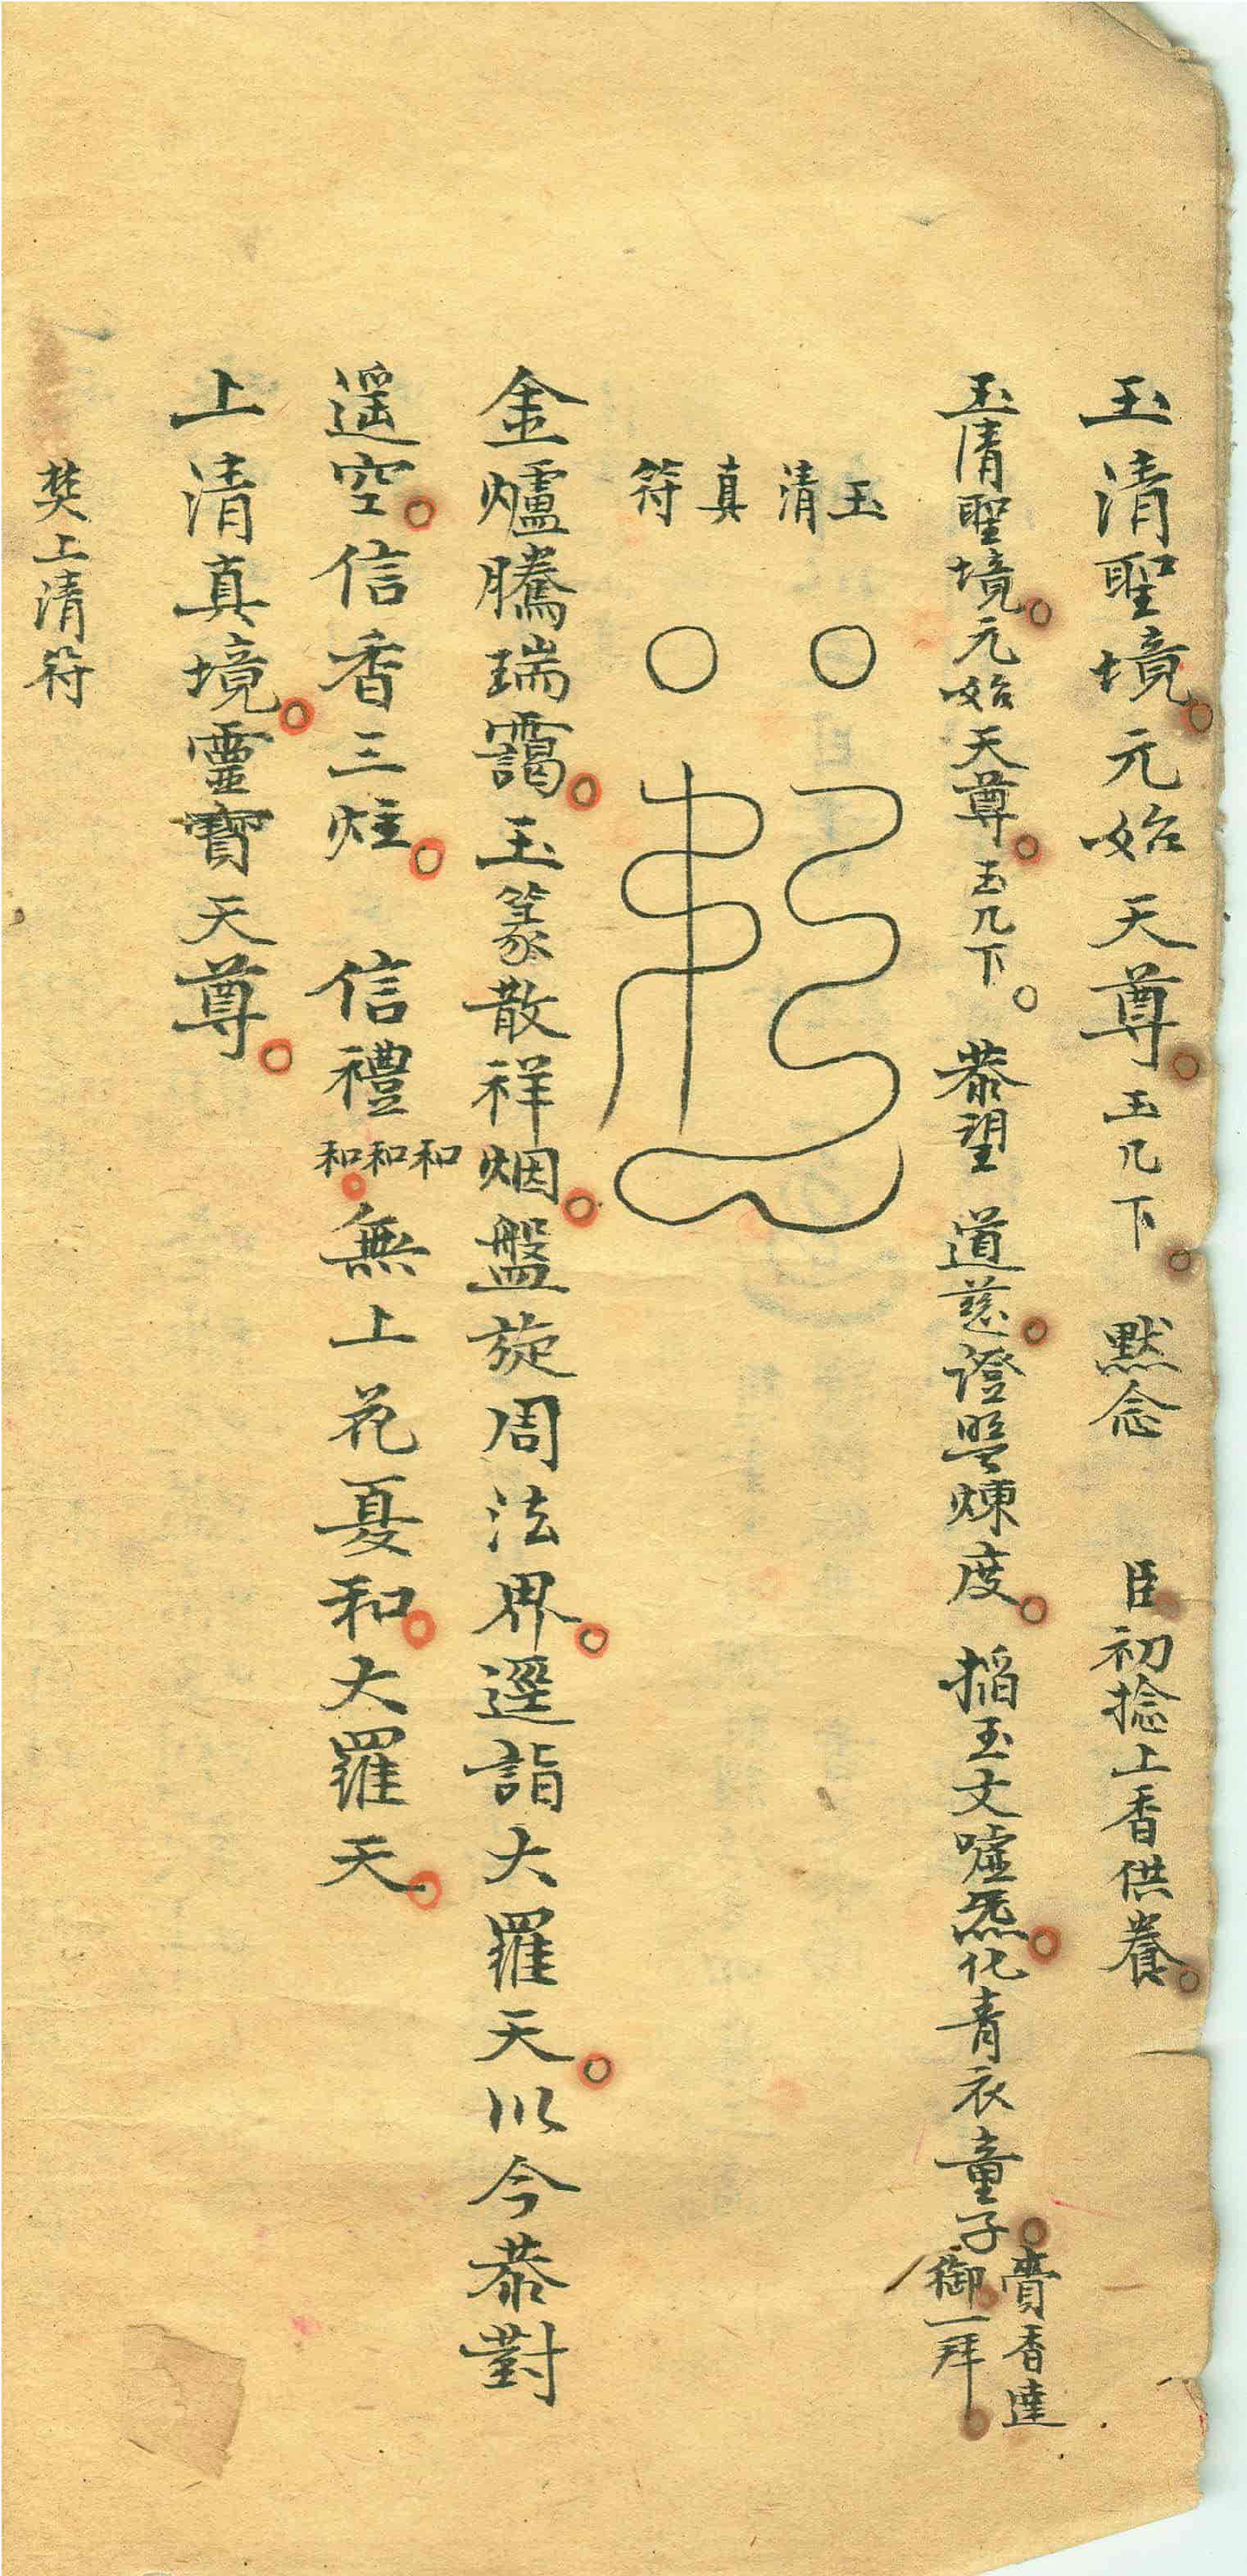 玉清聖境。元始天尊。玉几下。默念 臣初捻上香供養。
玉清聖境。元始天尊。玉几下。恭望 道慈。證盟煉度。搯玉文噓炁。化青衣童子。賫香達
御一拜。
玉清真符
金爐騰瑞靄。玉篆散祥烟。盤旋周法界。逕詣大羅天。以今恭對
遥空。信香三炷。 信禮和和和。無上花夏和。大羅天。
上清真境。靈寶天尊。
焚上清符